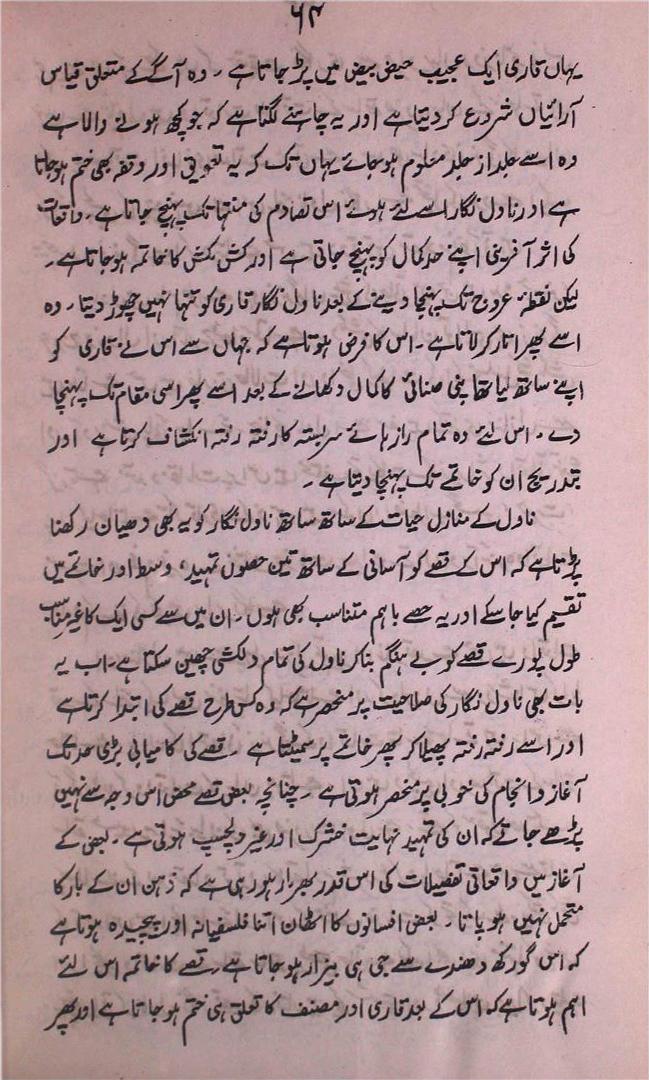 ۶۴
یہاں قاری ایک عجیب حیض بیض میں پڑ جاتا ہے ۔ وہ آگے کے متعلق قیاس
آرائیاں شروع کر دیتا ہے اور یہ چاہنے لگتا ہے کہ جو کچھ ہونے والا ہے
وہ اسے جلد از جلد معلوم ہو جائے یہاں تک کہ یہ تعویق اور وقفہ بھی ختم ہو جاتا
ہے اور ناول نگار اسے لئے ہوئے اس تصادم کی منتہا تک پہنچ جاتا ہے ۔ واقعات
کی اثر آفرینی اپنے حد کمال کو پہنچ جاتی ہے اور کش مکش کا خاتمہ ہو جاتا ہے ۔
لیکن نقطۂ عروج تک پہنچا دینے کے بعد ناول نگار قاری کو تنہا نہیں چھوڑ دیتا ۔ وہ
اسے پھر اتار کر لاتا ہے ۔ اس کا فرض ہوتا ہے کہ جہاں سے اس نے قاری کو
اپنے ساتھ لیا تھا اپنی صنائی کا کمال دکھانے کے بعد اسے پھر اسی مقام تک پہنچا
دے ۔ اس لئے وہ تمام راز ہائے سربستہ کا رفتہ رفتہ انکشاف کرتا ہے اور
بتدریج ان کو خاتمے تک پہنچا دیتا ہے ۔
ناول کے منازل حیات کے ساتھ ساتھ ناول نگار کو یہ بھی دھیان رکھنا
پڑتا ہے کہ اس کے قصے کو آسانی کے ساتھ تین حصوں تمہید، وسط اور خاتمے میں
تقسیم کیا جا سکے اور یہ حصے باہم متناسب بھی ہوں ۔ ان میں سے کسی ایک کا غیر مناسب
طول پورے قصے کو بے ہنگم بنا کر ناول کی تمام دلکشی چھین سکتا ہے ۔ اب یہ
بات بھی ناول نگار کی صلاحیت پر منحصر ہے کہ وہ کس طرح قصے کی ابتدا کرتا ہے
اور اسے رفتہ رفتہ پھیلا کر پھر خاتمے پر سمیٹتا ہے ۔ قصے کی کامیابی بڑی حد تک
آغاز و انجام کی خوبی پر منحصر ہوتی ہے ۔ چنانچہ بعض قصے محض اس وجہ سے نہیں
پڑھے جاتے کہ ان کی تمہید نہایت خشک اور غیر دلچسپ ہوتی ہے ۔ بعض کے
آغاز میں واقعاتی تفصیلات کی اس قدر بھرمار ہو رہی ہے کہ ذہن ان کے بار کا
متحمل نہیں ہو پاتا ۔ بعض افسانوں کا اٹھان اتنا فلسفیانہ اور پیچیدہ ہوتا ہے
کہ اس گورکھ دھندے سے جی ہی بیزار ہو جاتا ہے ۔ قصے کا خاتمہ اس لئے
اہم ہوتا ہے کہ اس کے بعد قاری اور مصنف کا تعلق ہی ختم ہو جاتا ہے اور پھر